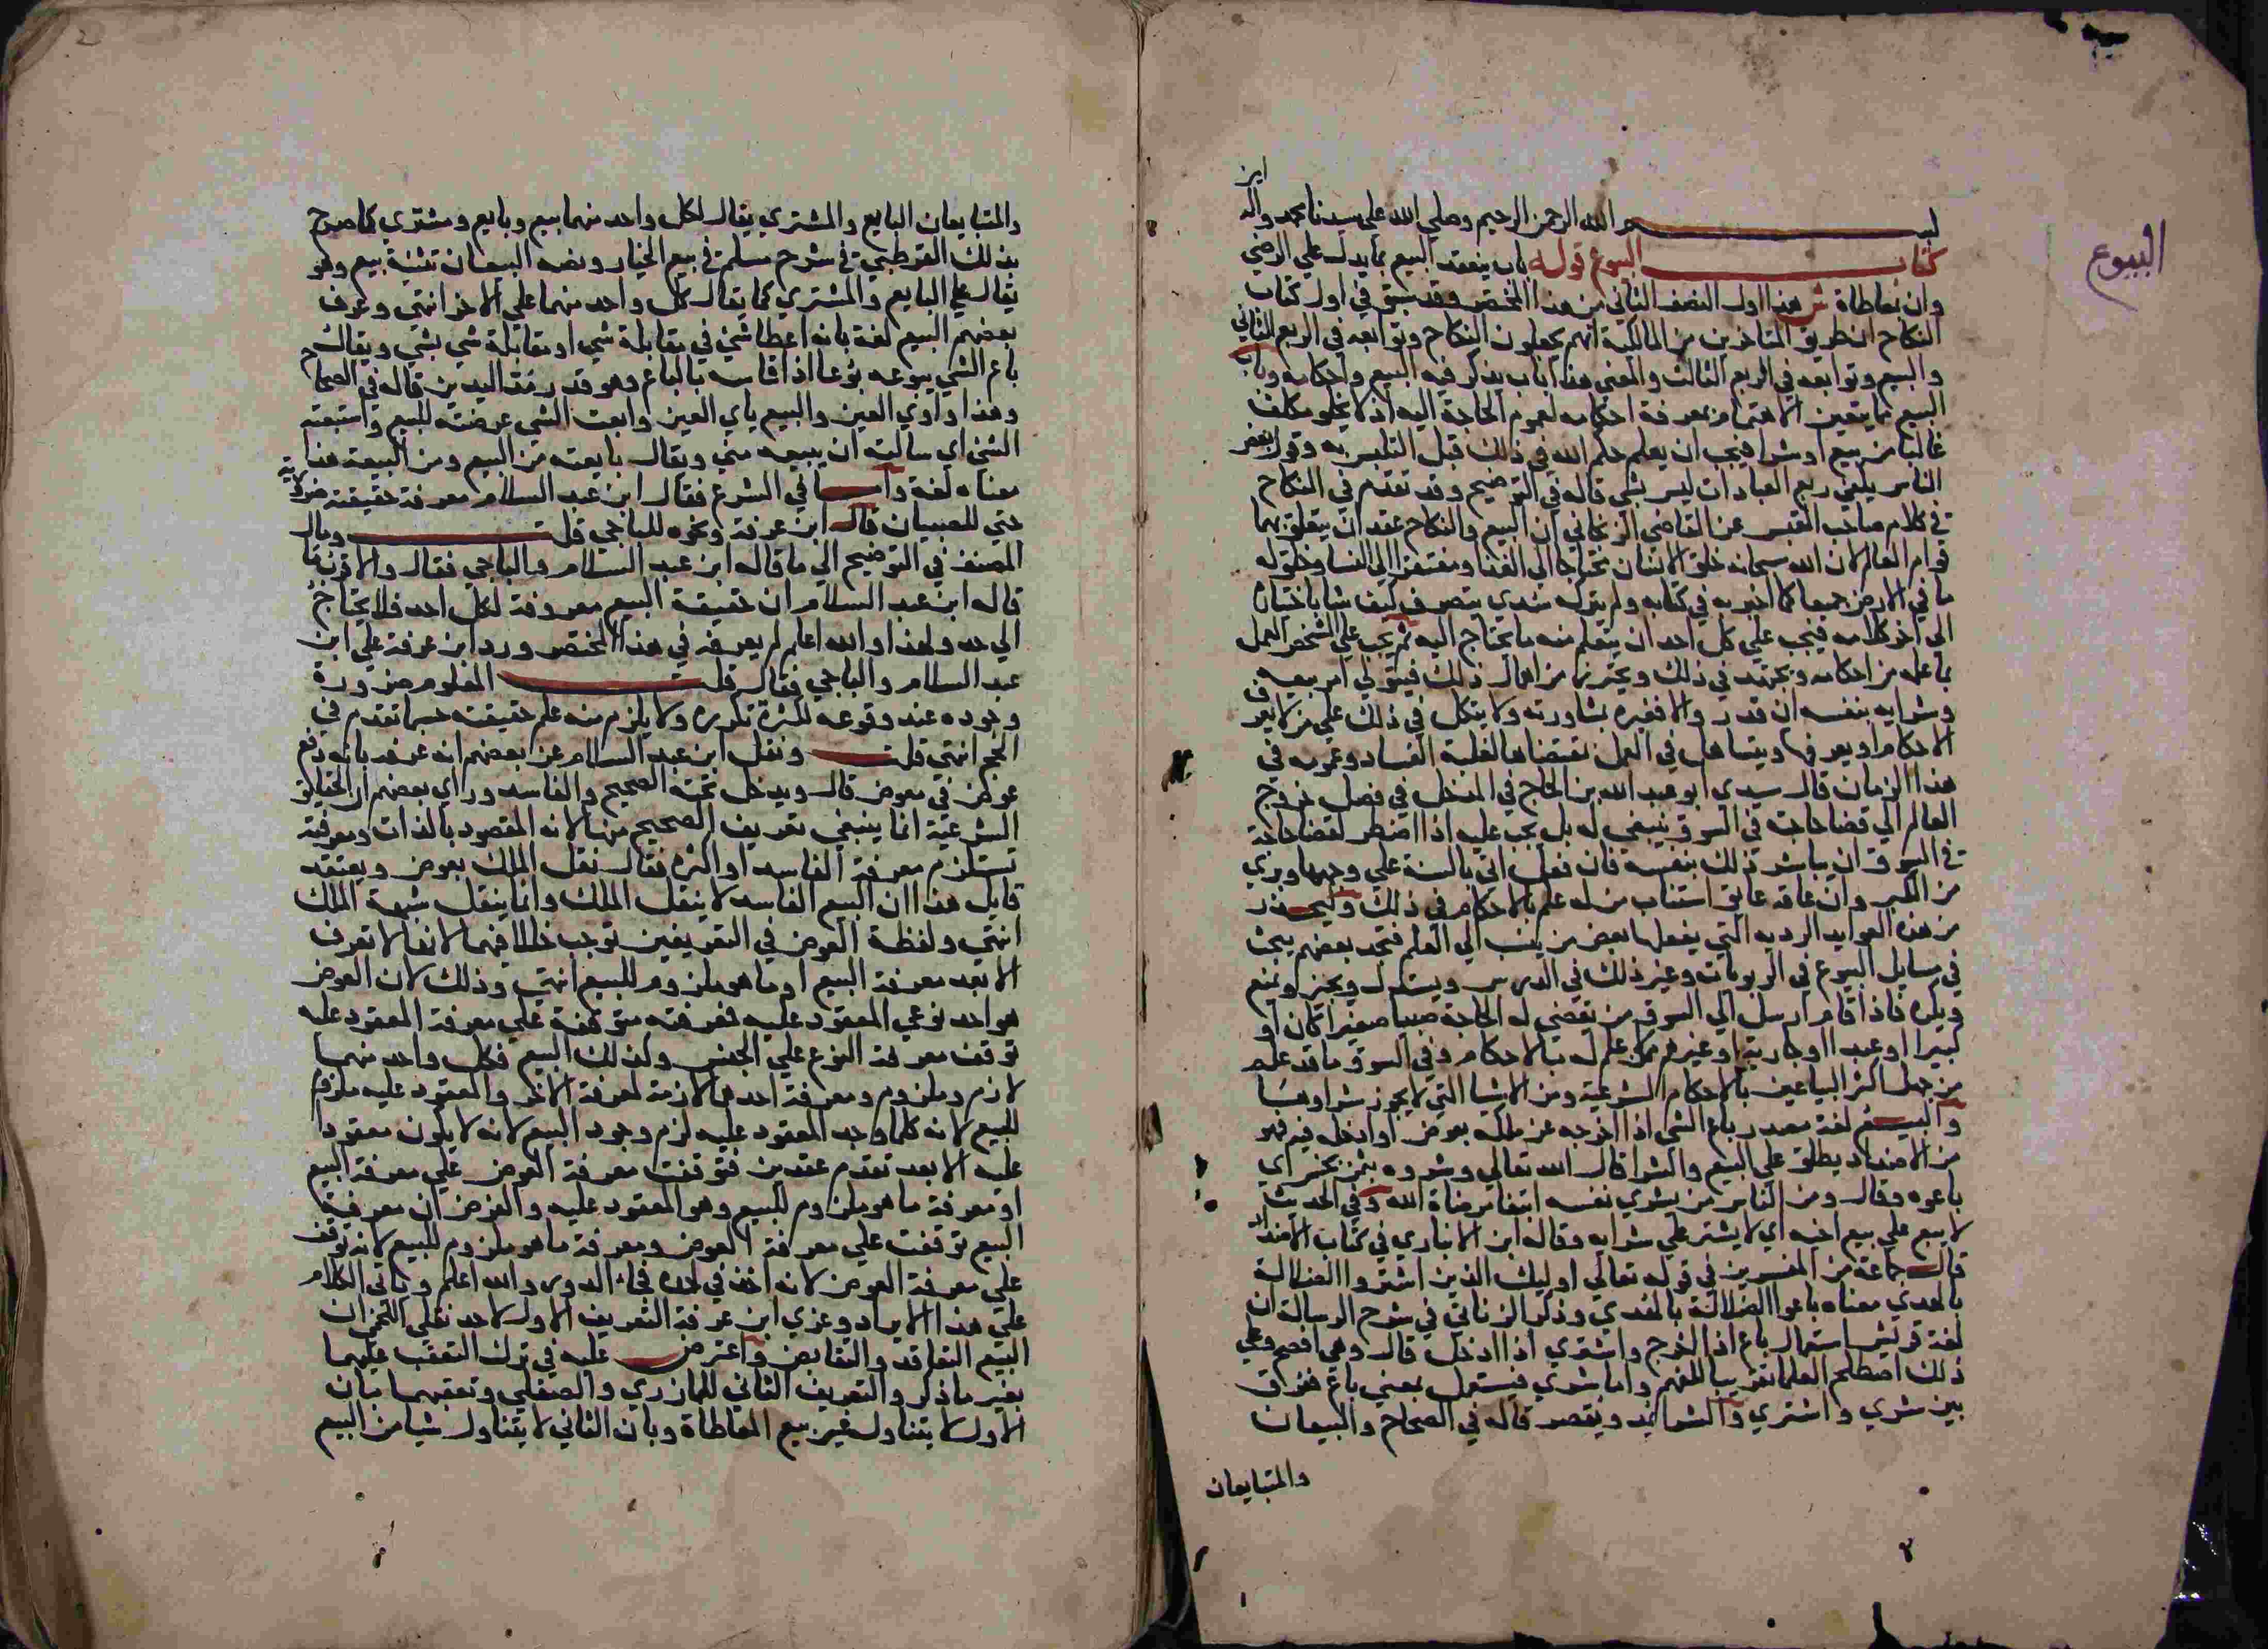 البيوع
اين
بسم الله الرحمن الرحيم وصلي الله علي سيدنا محمد واله
كتاب البيوع قوله باب ينعقد البيع بما يدل علي الرضي
وان بمعاطاة ش هذا اول النصف الثاني من هذا المختصر وقد سبق في اول كتاب
النكاح ان طريق المتاخرين من المالكية انهم يجعلون النكاح وتوابعه في الربع الثاني
والبيع وتوابعه في الربع الثالث والمعني هذا باب يذكر فيه البيع واحكامه وباب
البيع مما يتعين الاهتمام بمعرفة احكامه لعموم الحاجة اليه اذ لا يخلو مكلف
غالبا من بيع او شرا فيجب ان يعلم حكم الله في ذلك قبل التلبس به وقول بعض
الناس يكفي ربع العبادات ليس بشي قاله في التوضيح وقد تقدم في النكاح
في كلام صاحب القبس عن القاضي الزنجاني ان البيع والنكاح عقدان يتعلق بهما
قوام العالم لان الله سبحانه خلق الانسان محتاجا الي الغذا ومفتقرا الي النسا وخلق له
ما في الارض جميعا كما اخبر به في كتابه ولم يتركه سدي يتصرف كيف شا باختياره
الي اخر كلامه فيجب علي كل احد ان يتعلم منه ما يحتاج اليه ثم يجب علي الشخص العمل
بما علمه من احكامه ويجتهد في ذلك ويحترز من اهمال ذلك فيتولي امر بيعه
وشرايه بنفسه ان قدر والا فغيره بمشاورته ولا يتكل في ذلك علي من لا يعرف
الاحكام او يعرفها ويتساهل في العمل بمقتضاها لغلبة الفساد وعمومه في
هذا الزمان قال سيدي ابو عبد الله بن الحاج في المدخل في فصل خروج
العالم الي قضا حاجته في السوق ينبغي له بل يجب عليه اذا اضطر لقضا حاجة
في السوق ان يباشر ذلك بنفسه فان فعل اتي بالسنة علي وجهها وبري
من الكبر وان عاقه عايق استناب من له علم بالاحكام في ذلك وليحذر
من هذه العوايد الرديه التي يفعلها بعض من ينسب الي العلم فتجد بعضهم يبحث
في مسايل البيوع في الربويات وغير ذلك في الدرس ويستدل ويجيز ويمنع
ويكره فاذا قام ارسل الي السوق من يقضي له الحاجة صبيا صغيرا كان او
كبيرا او عبدا او جارية او غيرهم ممن لا علم له بالاحكام وفي السوق ما قد علم
من جهل اكثر البياعين بالاحكام الشرعية ومن الاشيا التي لا يجوز شراوها
والبيع لغة مصدر باع الشي اذا اخرجه عن ملكه بعوض او ادخله فيه فهو
من الاضداد يطلق علي البيع والشرا قال الله تعالي وشروه بثمن بخس اي
باعوه وقال ومن الناس من يشري نفسه ابتغا مرضاة الله وفي الحديث
لا يبيع علي بيع اخيه اي لا يشتر علي شرايه وقاله ابن الانباري في كتاب الاضداد
قالت جماعة من المفسرين في قوله تعالي اوليك الذين اشتروا الضلالة
بالهدي معناه باعوا الضلالة بالهدي وذكر الزناتي في شرح الرسالة ان
لغة قريش استعمال باع اذا اخرج واشتري اذا ادخل قال وهي افصح وعلي
ذلك اصطلح العلما تقريبا للفهم واما شري فيستعمل بمعني باع ففرق
بين شري واشتري والشرا يمد ويقصر قاله في الصحاح والبيعان
والمتبايعان
والمتبايعان البايع والمشتري يقال لكل واحد منهما بيع وبايع ومشتري كما صرح
بذلك القرطبي في شرح مسلم في بيع الخيار ونصه البيعان تثنية بيع وهو
يقال علي البايع والمشتري كما يقال كل واحد منهما علي الاخر انتهي وعرف
بعضهم البيع لغة بانه اعطا شي في مقابلة شي او مقابلة شي بشي ويقال
باع الشي يبوعه بوعا اذا قاسه بالباع وهو قدر مد اليدين قاله في الصحاح
وهذا واوي العين والبيع ياي العين وابعت الشي عرضته للبيع واستبعته
الشي اي سالته ان يبيعه مني ويقال بايعته من البيع ومن البيعة هذا
معناه لغة واما في الشرع فقال ابن عبد السلام معرفة حقيقته ضرورية
حتي للصبيان قال ابن عرفة ونحوه للباجي قلت ومال
المصنف في التوضيح الي ما قاله ابن عبد السلام والباجي فقال والاقرب ما
قاله ابن عبد السلام ان حقيقة البيع معروفة لكل احد فلا يحتاج
الي حد ولهذا والله اعلم لم يعرفه في هذا المختصر ورد ابن عرفة علي ابن
عبد السلام والباجي فقال قلت المعلوم ضرورة
وجوده عند وقوعه لكثرة تكرره ولا يلزم منه علم حقيقته حسبما تقدم في
الحج انتهي قلت ونقل ابن عبد السلام عن بعضهم انه عرفه بانه دفع
عوض في معوض قال ويدخل تحته الصحيح والفاسد وراي بعضهم ان الحقايق
الشرعية انما ينبغي تعريف الصحيح منها لانه المقصود بالذات ومعرفته
تستلزم معرفة الفاسد او اكثره فقال نقل الملك بعوض ويعتقد
قايل هذا ان البيع الفاسد لا ينقل الملك وانما ينقل شبهة الملك
انتهي ولفظة العوض في التعريفين توجب خللا فيهما لانها لا تعرف
الا بعد معرفة البيع او ما هو ملزوم للبيع انتهي وذلك لان العوض
هو احد نوعي المعقود عليه فمعرفته متوقفة علي معرفة المعقود عليه
توقف معرفة النوع علي الجنس ولذلك البيع فكل واحد منهما
لازم وملزوم ومعرفة احدهما لازمة لمعرفة الاخر والمعقود عليه ملزوم
للبيع لانه كلما وجد المعقود عليه لزم وجود البيع لانه لا يكون معقودا
عليه الا بعد تقدم عقد بين فتوقفت معرفة العوض علي معرفة البيع
او معرفة ما هو ملزوم للبيع وهو المعقود عليه والفرض ان معرفة
البيع توقفت علي معرفة العوض ومعرفة ما هو ملزوم للبيع لانه توقف
علي معرفة العوض لانه اخذ في الحد فجاء الدور والله اعلم وياتي الكلام
علي هذا الايراد وعزي ابن عرفة التعريف الاول لاحد نقلي اللخمي ان
البيع التعاقد والتقابض واعترض عليه في ترك التعقب عليهما
بغير ما ذكر والتعريف الثاني للمازري والصقلي وتعقبهما بان
الاول لا يتناول غير بيع المعاطاة وبان الثاني لا يتناول شيا من البيع